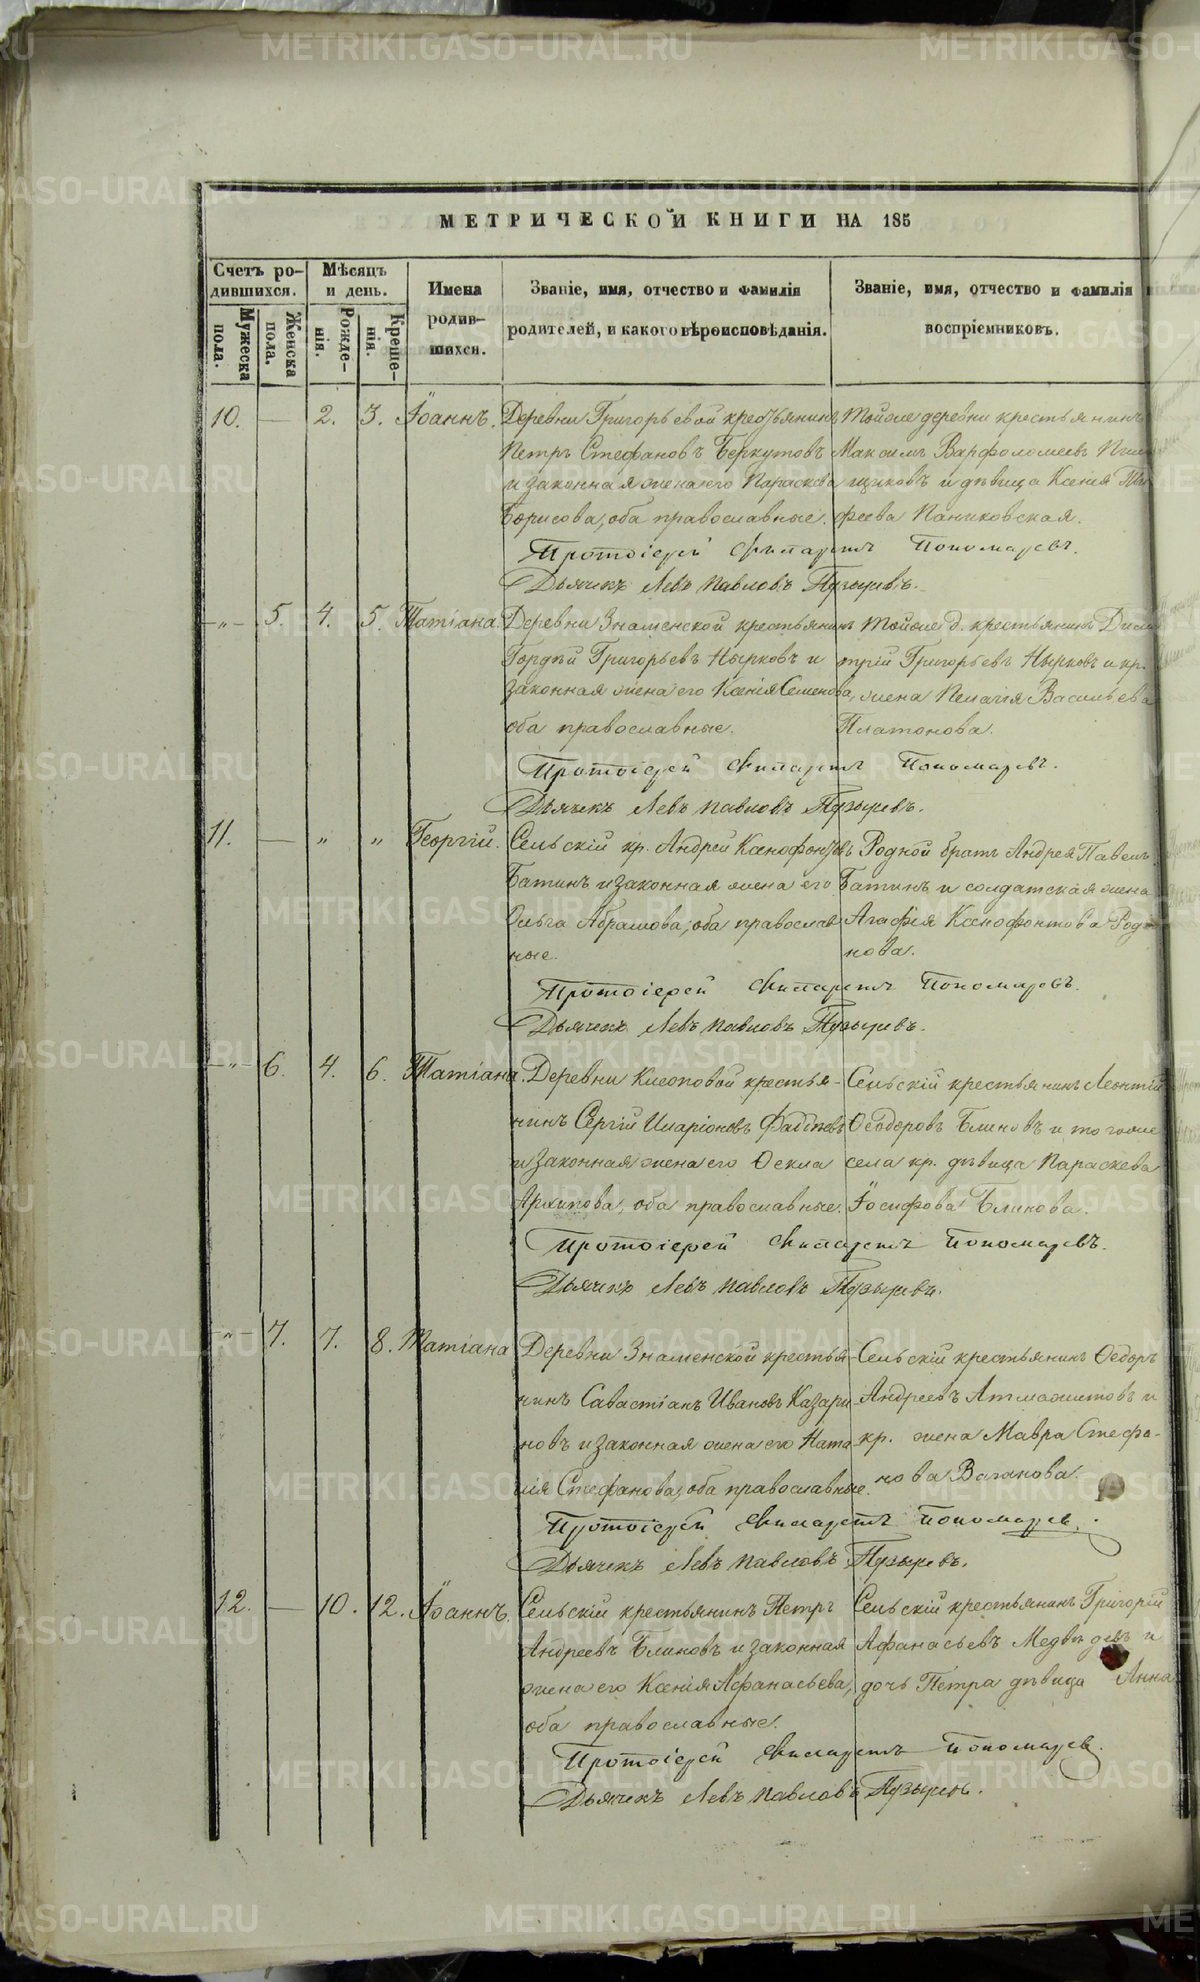 МЕТРИЧЕСКОЙ КНИГИ НА 185
Счетъ ро-
дившихся.
Мужеска
пола.
Женска
пола.
Мѣсяцъ
и день.
Рожде-
нія.
Креще-
нія.
Имена
родив-
шихся.
Званіе, имя, отчество и фамилія
родителей, и какого вѣроисповѣданія.
Званіе, имя, отчество и фамилія
воспріемниковъ.
10. — 2. 3. Іоаннъ. Деревни Григорьевой крестьянинъ Тойже деревни крестьянинъ
Петръ Стефановъ Беркутовъ Максимъ Варфоломеевъ
и законная жена его Параскева щиковъ и дѣвица Ксенія
Борисова, оба православные. феева Паниковская.
Протоіерей Филаретъ Пономаревъ.
Дьячекъ Левъ Павловъ Пузыревъ.
-„- 5. 4. 5. Татіана. Деревни Знаменской крестьянинъ Тойже д. крестьянинъ Дими
Гордѣй Григорьевъ Нырковъ и трій Григорьевъ Нырковъ и кр.
законная жена его Ксенія Семенова, жена Пелагія Васильева
оба православные. Платонова.
Протоіерей Филаретъ Пономаревъ.
Дьячекъ Левъ Павловъ Пузыревъ.
11. — „ „ Георгій. Сельскій кр. Андрей Ксенофонтовъ Родной братъ Андрея Павелъ
Батинъ и законная жена его Батинъ и солдатская жена
Ольга Абрамова, оба православ Агафія Ксенофонтова Роди
ные. нова.
Протоіерей Филаретъ Пономаревъ.
Дьячекъ Левъ Павловъ Пузыревъ.
-„- 6. 4. 6. Татіана. Деревни крестья- Сельскій крестьянинъ Леонтій
нинъ Сергій Иларіоновъ Ѳеодоровъ Блиновъ и тогоже
и законная жена его Ѳекла села кр. дѣвица Параскева
Архипова, оба православные. Іосифова Блинова.
Протоіерей Филаретъ Пономаревъ.
Дьячекъ Левъ Павловъ Пузыревъ.
-„- 7. 7. 8. Татіана Деревни Знаменской крестья- Сельскій крестьянинъ Ѳедоръ
нинъ Савастіанъ Ивановъ Казари Андреевъ и
новъ и законная жена его Ната- кр. жена Мавра Стефа-
лія Стефанова, оба православные. нова Ваганова.
Протоіерей Филаретъ Пономарев.
Дьячекъ Левъ Павловъ Пузыревъ.
12. — 10. 12. Іоаннъ. Сельскій крестьянинъ Петръ Сельскій крестьянинъ Григорій
Андреевъ Блиновъ и законная Афанасьевъ Медвѣдевъ и
жена его Ксенія Афанасьева, дочь Петра дѣвица Анна
оба православные.
Протоіерей Филаретъ Пономарев.
Дьячекъ Левъ Павловъ Пузыревъ.
METRIKI.GASO-URAL.RU